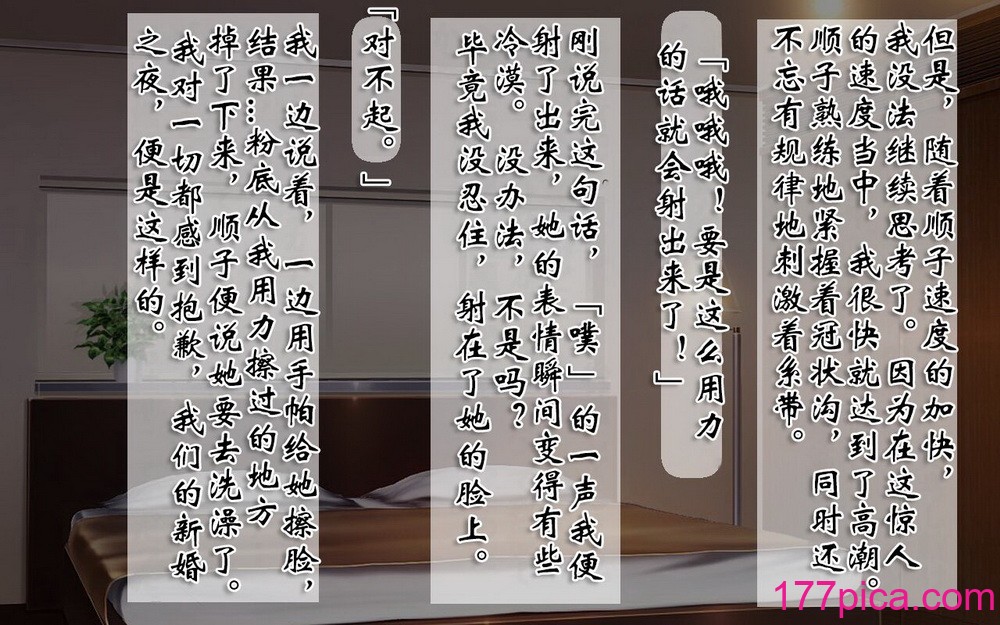 但是，随着顺子速度的加快，
我没法继续思考了。因为在这惊人
的速度当中，我很快就达到了高潮。
顺子熟练地紧握着冠状沟，同时还
不忘有规律地刺激着系带。
「哦哦哦！要是这么用力
的话就会射出来了！」
刚说完这句话，「噗」的一声我便
射了出来，她的表情瞬间变得有些
冷漠。没办法，不是吗？
毕竟我没忍住，射在了她的脸上。
『对不起。」
我一边说着，一边用手帕给她擦脸，
结果…粉底从我用力擦过的地方
掉了下来，顺子便说她要去洗澡了。
我对一切都感到抱歉，我们的新婚
之夜，便是这样的。
177pica.com